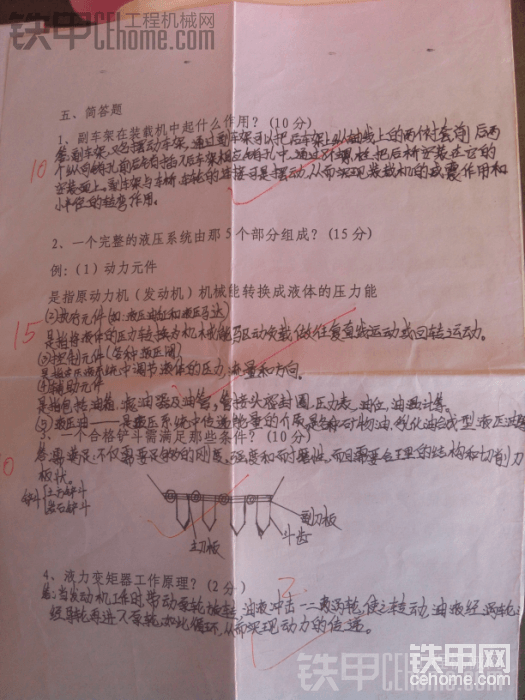 铁甲工程机械网
CEhome.com
五、简答题
1、副车架在装载机中起什么作用？（10分）
答：副车架又名摆动车架，通过副车架可以把后车架上从轴线上的两个衬套前后两
个纵向销孔前后销插入后车架相应销孔中，通过8个螺栓把后桥安装在它的
安装面上，副车架与车桥、车轮的连接可是摆动，从而实现装载机的减震作用和
小半径的转弯作用。
10
2、一个完整的液压系统由那5个部分组成？（15分）
例：（1）动力元件
是指原动力机（发动机）机械能转换成液体的压力能
(2)执行元件(如:液压油缸和液压马达)
是指将液体的压力转换为机械能驱动负载做往复直线运动或回转运动。
15
(3)控制元件(各种液压阀)
是指在液压系统中调节液体的压力、流量和方向。
(4)辅助元件
是指包括油箱、滤油器及油管、管接头密封圈、压力表、油位、油温计等。
(5)液压油——是液压系统中传递能量的介质是各种矿物油、乳化油
3、一个合格铲斗需满足那些条件？（10分）
答：需满足:不仅需要足够的刚度、强度和耐磨性，而且需要合理的结构和切削刀
板状。
铲斗 土方铲斗
岩石铲斗
副刀板
斗齿
主刀板
4、液力变矩器工作原理？（2分）
2
答：当发动机工作时，带动泵轮旋转，油液冲击涡轮，使之转动，油液经涡轮
经导轮再进入泵轮，如此循环，从而实现动力的传递。
铁甲工程机械网
CEhome.com
铁甲网
cehome.com